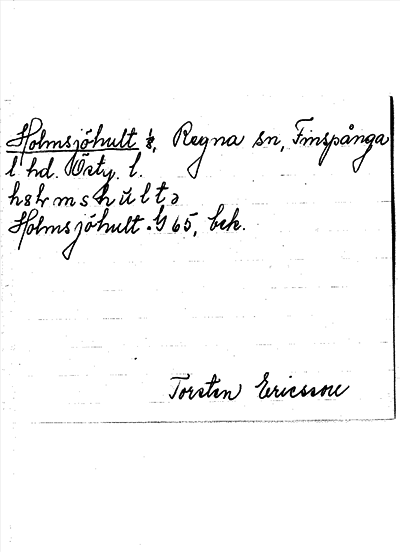 Holmsjöhult 1/8, Regna sn, Finspånga
l hd. Östg. l.
hɷlmshultə
Holmsjöhult. G 65, bek.
Torsten Ericsson